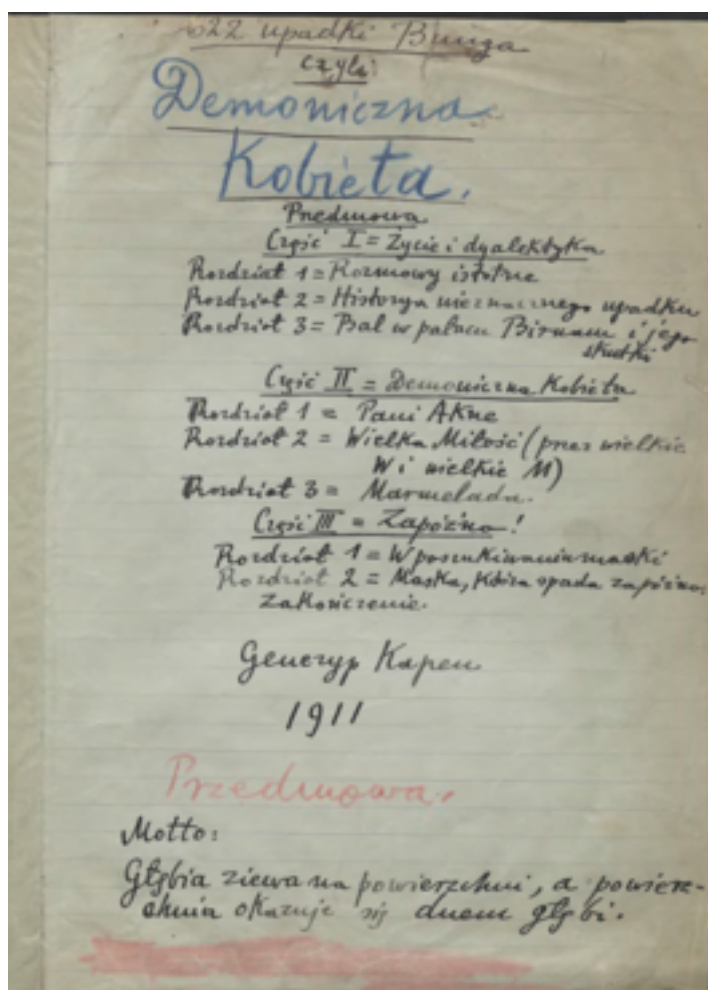 622 upadki Bunga
czyli
Demoniczna
Kobieta.
Przedmowa
Część I = Życie i dyalektyka
Rozdział 1 = Rozmowy istotne
Rozdział 2 = Historya nieznacznego upadku
Rozdział 3 = Bal w pałacu Birnam i jego
skutki
Część II = Demoniczna Kobieta
Rozdział 1 = Pani Akne
Rozdział 2 = Wielka Miłość (przez wielkie
W i wielkie M)
Rozdział 3 = Marmelada.
Część III = Zapóźno!
Rozdział 1 = W poszukiwaniu maski
Rozdział 2 = Maska, która spada zapóźno.
Zakończenie.
Genezyp Kapen
1911
Przedmowa.
Motto:
Głębia ziewa na powierzchni, a powierz-
chnia okazuje się dnem głębi.